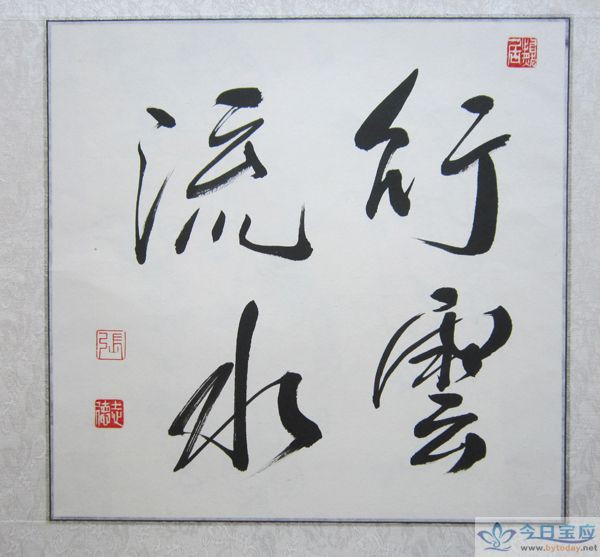 行雲
流水
張
志德
今日宝应
www.bytoday.net